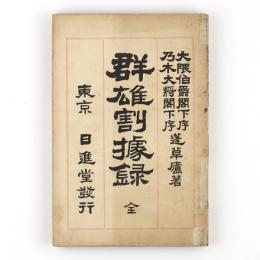 大隈伯爵閣下序
乃木大將閣下序
蓬草廬著
群雄割據録
全
東京 日進堂發行